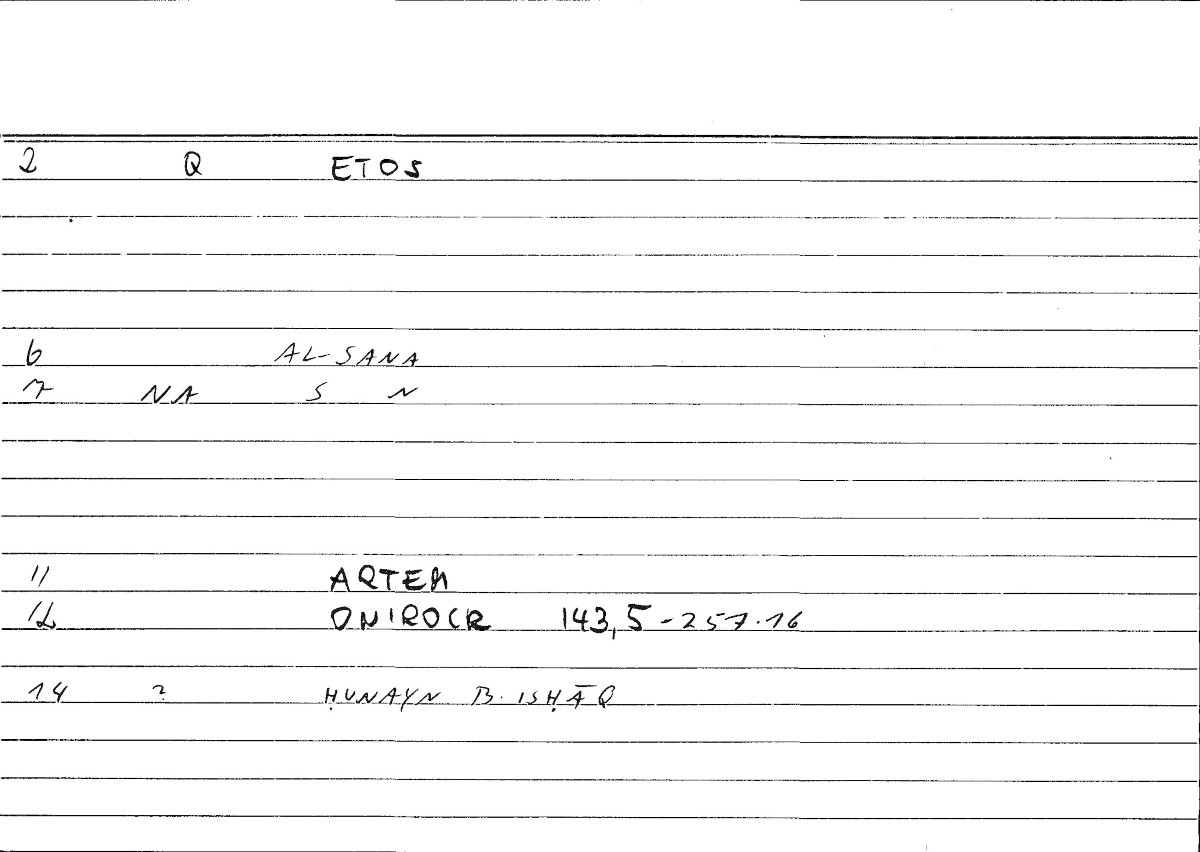 2 Q ETOS
6 AL-SANA
7 NA S N
11 ARTEM
12 ONIROCR 143,5-257.16
14 ? ḤUNAYN B. ISḤĀQ